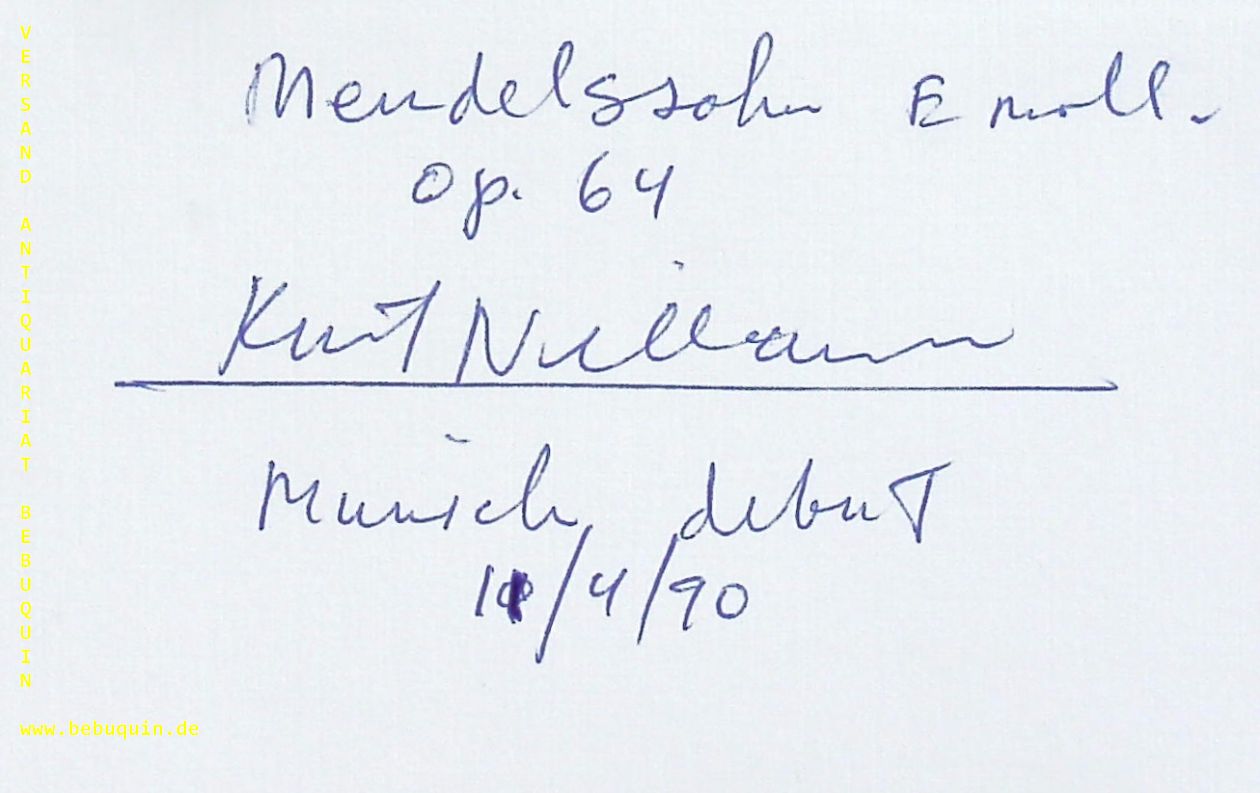 Mendelssohn E moll.
op. 64
Kurt Nikkanen
Munich debut
11/4/90
VERSAND ANTIQUARIAT BEBUQUIN
www.bebuquin.de